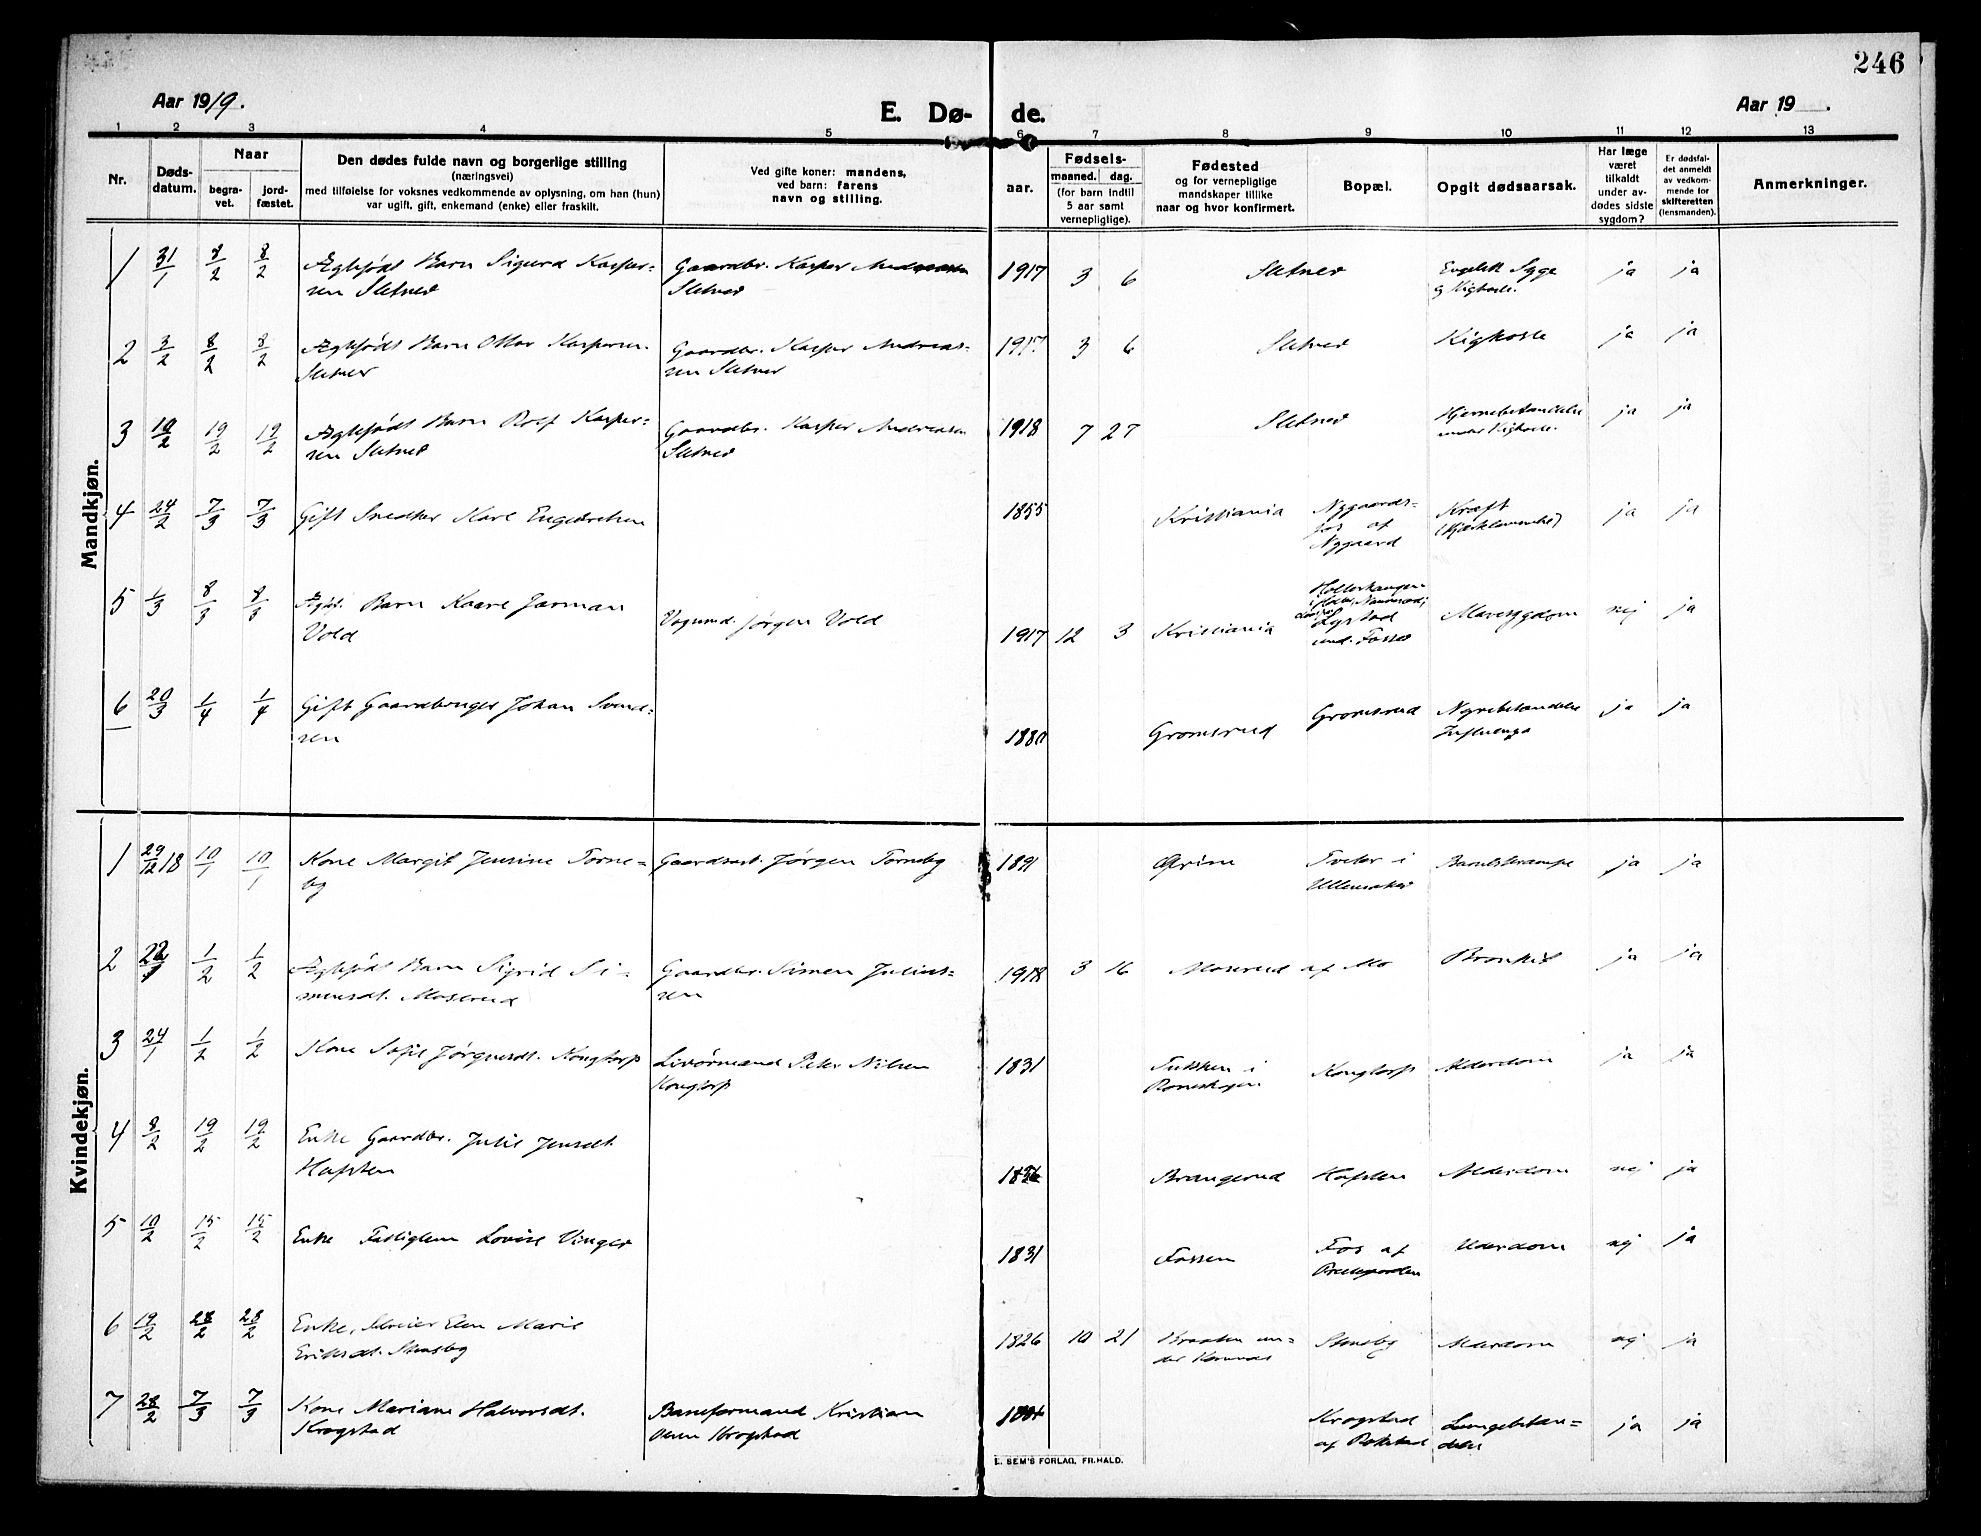 246
Aar 1919.
E. Dø- de.
Aar 19 .
1 2 3 4 5 6 7 8 9 10 11 12 13
Nr.
Døds-
datum.
Naar
begra-
vet.
jord-
fæstet.
Den dødes fulde navn og borgerlige stilling
(næringsvei)
med tilføielse for voksnes vedkommende av oplysning, om han (hun)
var ugift, gift, enkemand (enke) eller fraskilt.
Ved gifte koner: mandens,
ved barn: farens
navn og stilling.
Fødsels-
aar.
maaned. dag.
(for barn indtil
5 aar samt
vernepligtige).
Fødested
og for vernepligtige
mandskaper tillike
naar og hvor konfirmert.
Bopæl.
Opgit dødsaarsak.
Har læge
været
tilkaldt
under av-
dødes sidste
sygdom?
Er dødsfal-
det anmeldt
av vedkom-
mende for
skifteretten
(lensmanden).
Anmerkninger.
Mandkjøn.
1 31/1 8/2 8/2 Ægtefødt Barn Sigurd Kasper- Gaardbr. Kasper Andreassen 1917 3 6 Sletner Engelsk Syge ja ja
sen Sletner Sletner og Kighoste.
2 3/2 8/2 8/2 Ægtefødt Barn Ottar Kaspersen Gaardbr. Kasper Andreas- 1917 3 6 Sletner Kighoste ja ja
Sletner sen Sletner
3 10/2 19/2 19/2 Ægtefødt Barn Rolf Kasper- Gaardbr. Kasper Andreassen 1918 7 27 Sletner Hjernebetændelse ja ja
sen Sletner Sletner under Kighoste.
4 24/2 7/3 7/3 Gift Snedker Karl Engebretsen 1855 Kristiania Nygaards- Kræft ja ja
fos af
Nygaard
5 1/3 8/3 8/3 Ægte. Barn Kaare Jarman Vognmd. Jørgen Vold 1917 12 3 Kristiania Lystad Mavesygdom nej ja
Vold und. Fosser
6 20/3 1/4 1/4 Gift Gaardbruger Johan Svend- 1880 Gromsrud Gromsrud Nyrebetændelse ja ja
sen Influenza
Kvindekjøn.
1 29/12 18 10/1 10/1 Kone Margit Jensine Torne- Gaardbest. Jørgen Torneby 1891 Grini Tveter i Barselkrampe ja ja
by Ullensaker
2 22/1 1/2 1/2 Ægtefødt Barn Sigrid Si- Gaardbr. Simen Julius- 1918 3 16 Moserud af Mo Bronkit ja ja
mensdt. Moserud sen
3 24/1 1/2 1/2 Kone Sofie Jørgensdt. Kongtorp Livørmand Peter Nilsen 1831 Tukken i Kongtorp Alderdom ja ja
Kongtorp Romskogen
4 8/2 19/2 19/2 Enke Gaardbr. Julie Jensdt. 1836 Brangerud Haften Alderdom nej ja
Haften
5 10/2 15/2 15/2 Enke Fattiglem Lovise Vinger 1831 Fossen Fos af Alderdom nej ja
Prestegaarden
6 19/2 28/2 28/2 Enke, Elen Marie 1826 10 21 Braaten un- Stensby Alderdom nej ja
Eriksdt. Stensby der
7 28/2 7/3 7/3 Kone Mariane Halvorsdt. Baneformand Kristian Krogstad Lungebetæn- ja ja
Krogstad Olsen Krogstad af Rokstad delse
E. SEM'S FORLAG, FR.HALD.